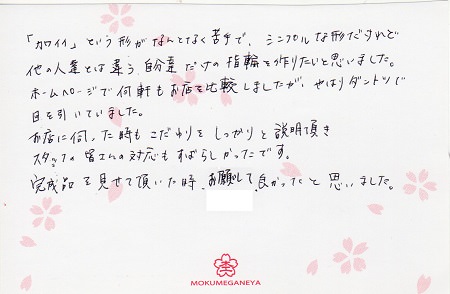 「カワイイ」という形がなんとなく苦手で、シンプルな形だけれど
他の人達とは違う自分達だけの指輪を作りたいと思いました。
ホームページで何軒もお店を比較しましたが、やはりダントツで
目を引いていました。
お店に伺った時もこだわりをしっかりと説明頂き
スタッフの皆さんの対応もすばらしかったです。
完成品を見せて頂いた時、お願いして良かったと思いました。
MOKUMEGANEYA